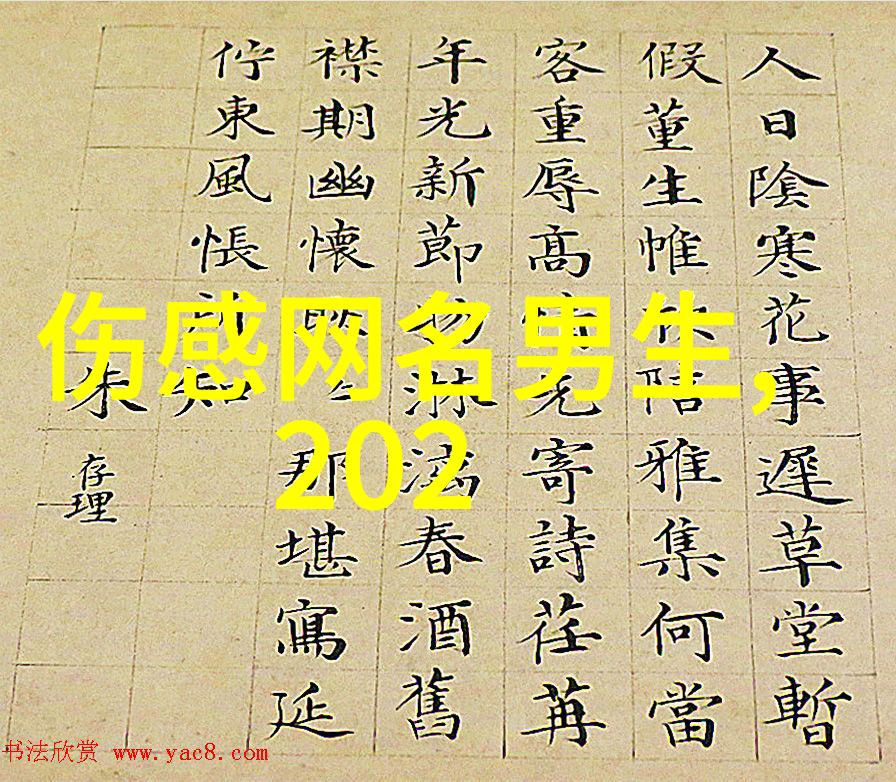 人日陰寒花事遲草堂暫
假董生帷陪雅集何當
客重辱高情寄詩荏苒
年光新節物淋漓春酒舊
襟期幽懷那堪寫延
佇東風悵所知
朱存理
伤感网名男生,
202
书法欣赏 www.yac8.com